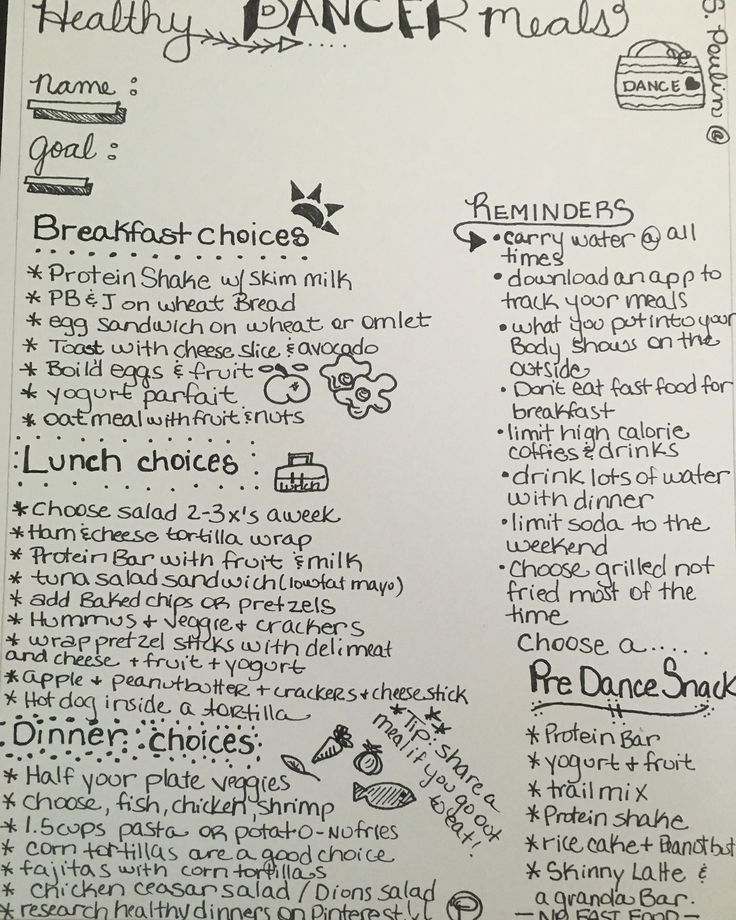 Healthy DANCER meals
S. Paulin @
DANCE
name :
goal :
Breakfast choices
* Protein Shake w/ skim milk
* PB & J on wheat Bread
* egg sandwich on wheat or omlet
* Toast with cheese slice & avocado
* Boil'd eggs & fruit
* yogurt parfait
* oatmeal with fruit & nuts
Lunch choices
Lunch
* Choose salad 2-3x's a week
* Ham & cheese tortilla wrap
* Protein Bar with fruit & milk
* tuna salad sandwich (lowfat mayo)
* add Baked chips OR pretzels
* Hummus + veggie + crackers
* wrap pretzel sticks with deli meat
and cheese + fruit + yogurt
* apple + peanutbutter + crackers + cheese stick
* Hot dog inside a tortilla
Dinner choices
* Half your plate veggies
* choose, fish, chicken, shrimp
* 1.5 cups pasta OR potato - NO fries
* corn tortillas are a good choice
* fajitas with corn tortillas
* chicken ceasar salad / Dions salad
* research healthy dinners on Pinterest!
*Tip: share a
meal if you go out
to eat!
REMINDERS
• carry water @ all
times
• download an app to
track your meals
• what you put into your
Body shows on the
outside
• Don't eat fast food for
breakfast
• limit high calorie
coffies & drinks
• drink lots of water
with dinner
• limit soda to the
weekend
• Choose grilled not
fried most of the
time
Choose a.....
Pre Dance Snack
* Protein Bar
* yogurt + fruit
* trail mix
* Protein shake
* rice cake + Peanot but
* Skinny Latte &
a granola Bar.
— NO FAST FOOD —